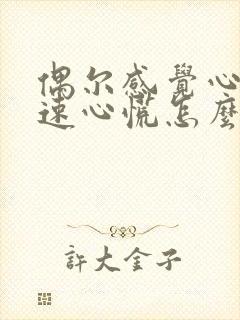 偶尔感覺心
速心慌怎麼
許大金子